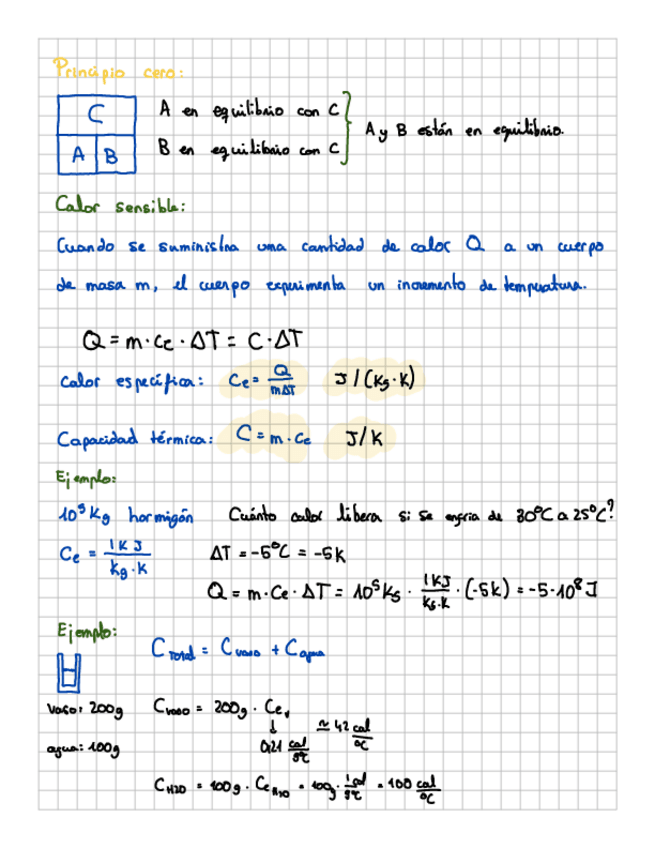 Principio cero:
C
A B
A en equilibrio con C
B en equilibrio con C
A y B están en equilibrio.
Calor sensible:
Cuando se suministra una cantidad de calor Q a un cuerpo
de masa m, el cuerpo experimenta un incremento de temperatura.
Q = m · Ce · ΔT = C · ΔT
Calor específica: Ce = Q / mΔT J/(Kg·K)
Capacidad térmica: C = m · Ce J/K
Ejemplo:
10⁵ Kg hormigón Cuánto calor libera si se enfria de 30°C a 25°C?
Ce = 1KJ / Kg·K ΔT = -5°C = -5K
Q = m · Ce · ΔT = 10⁵ Kg · 1KJ / Kg·K · (-5K) = -5·10⁸ J
Ejemplo:
C Total = C vaso + C agua
vaso: 200g C vaso = 200g · Ce,v ≈ 42 cal/°C
↓
0,21 cal/g°C
agua: 100g
C H2O = 100g · Ce H2O = 100g · 1 cal/g°C = 100 cal/°C